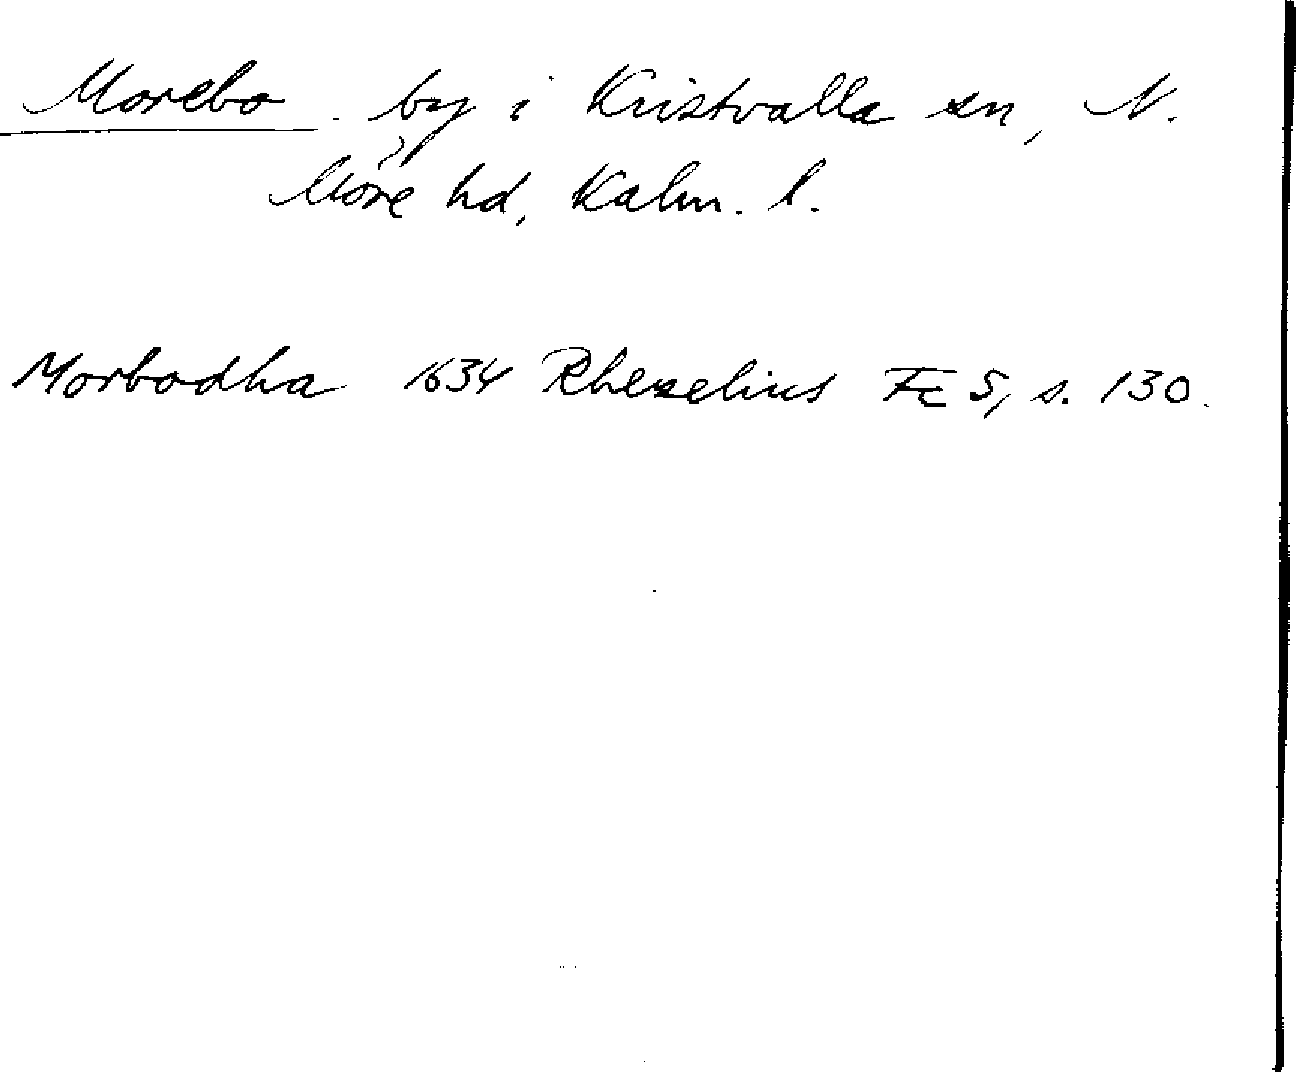 Morebo. by i Kristvalla sn, N.
Möre hd, Kalm. l.
Morbodha 1634 Rhezelius Fc 5, s. 130.